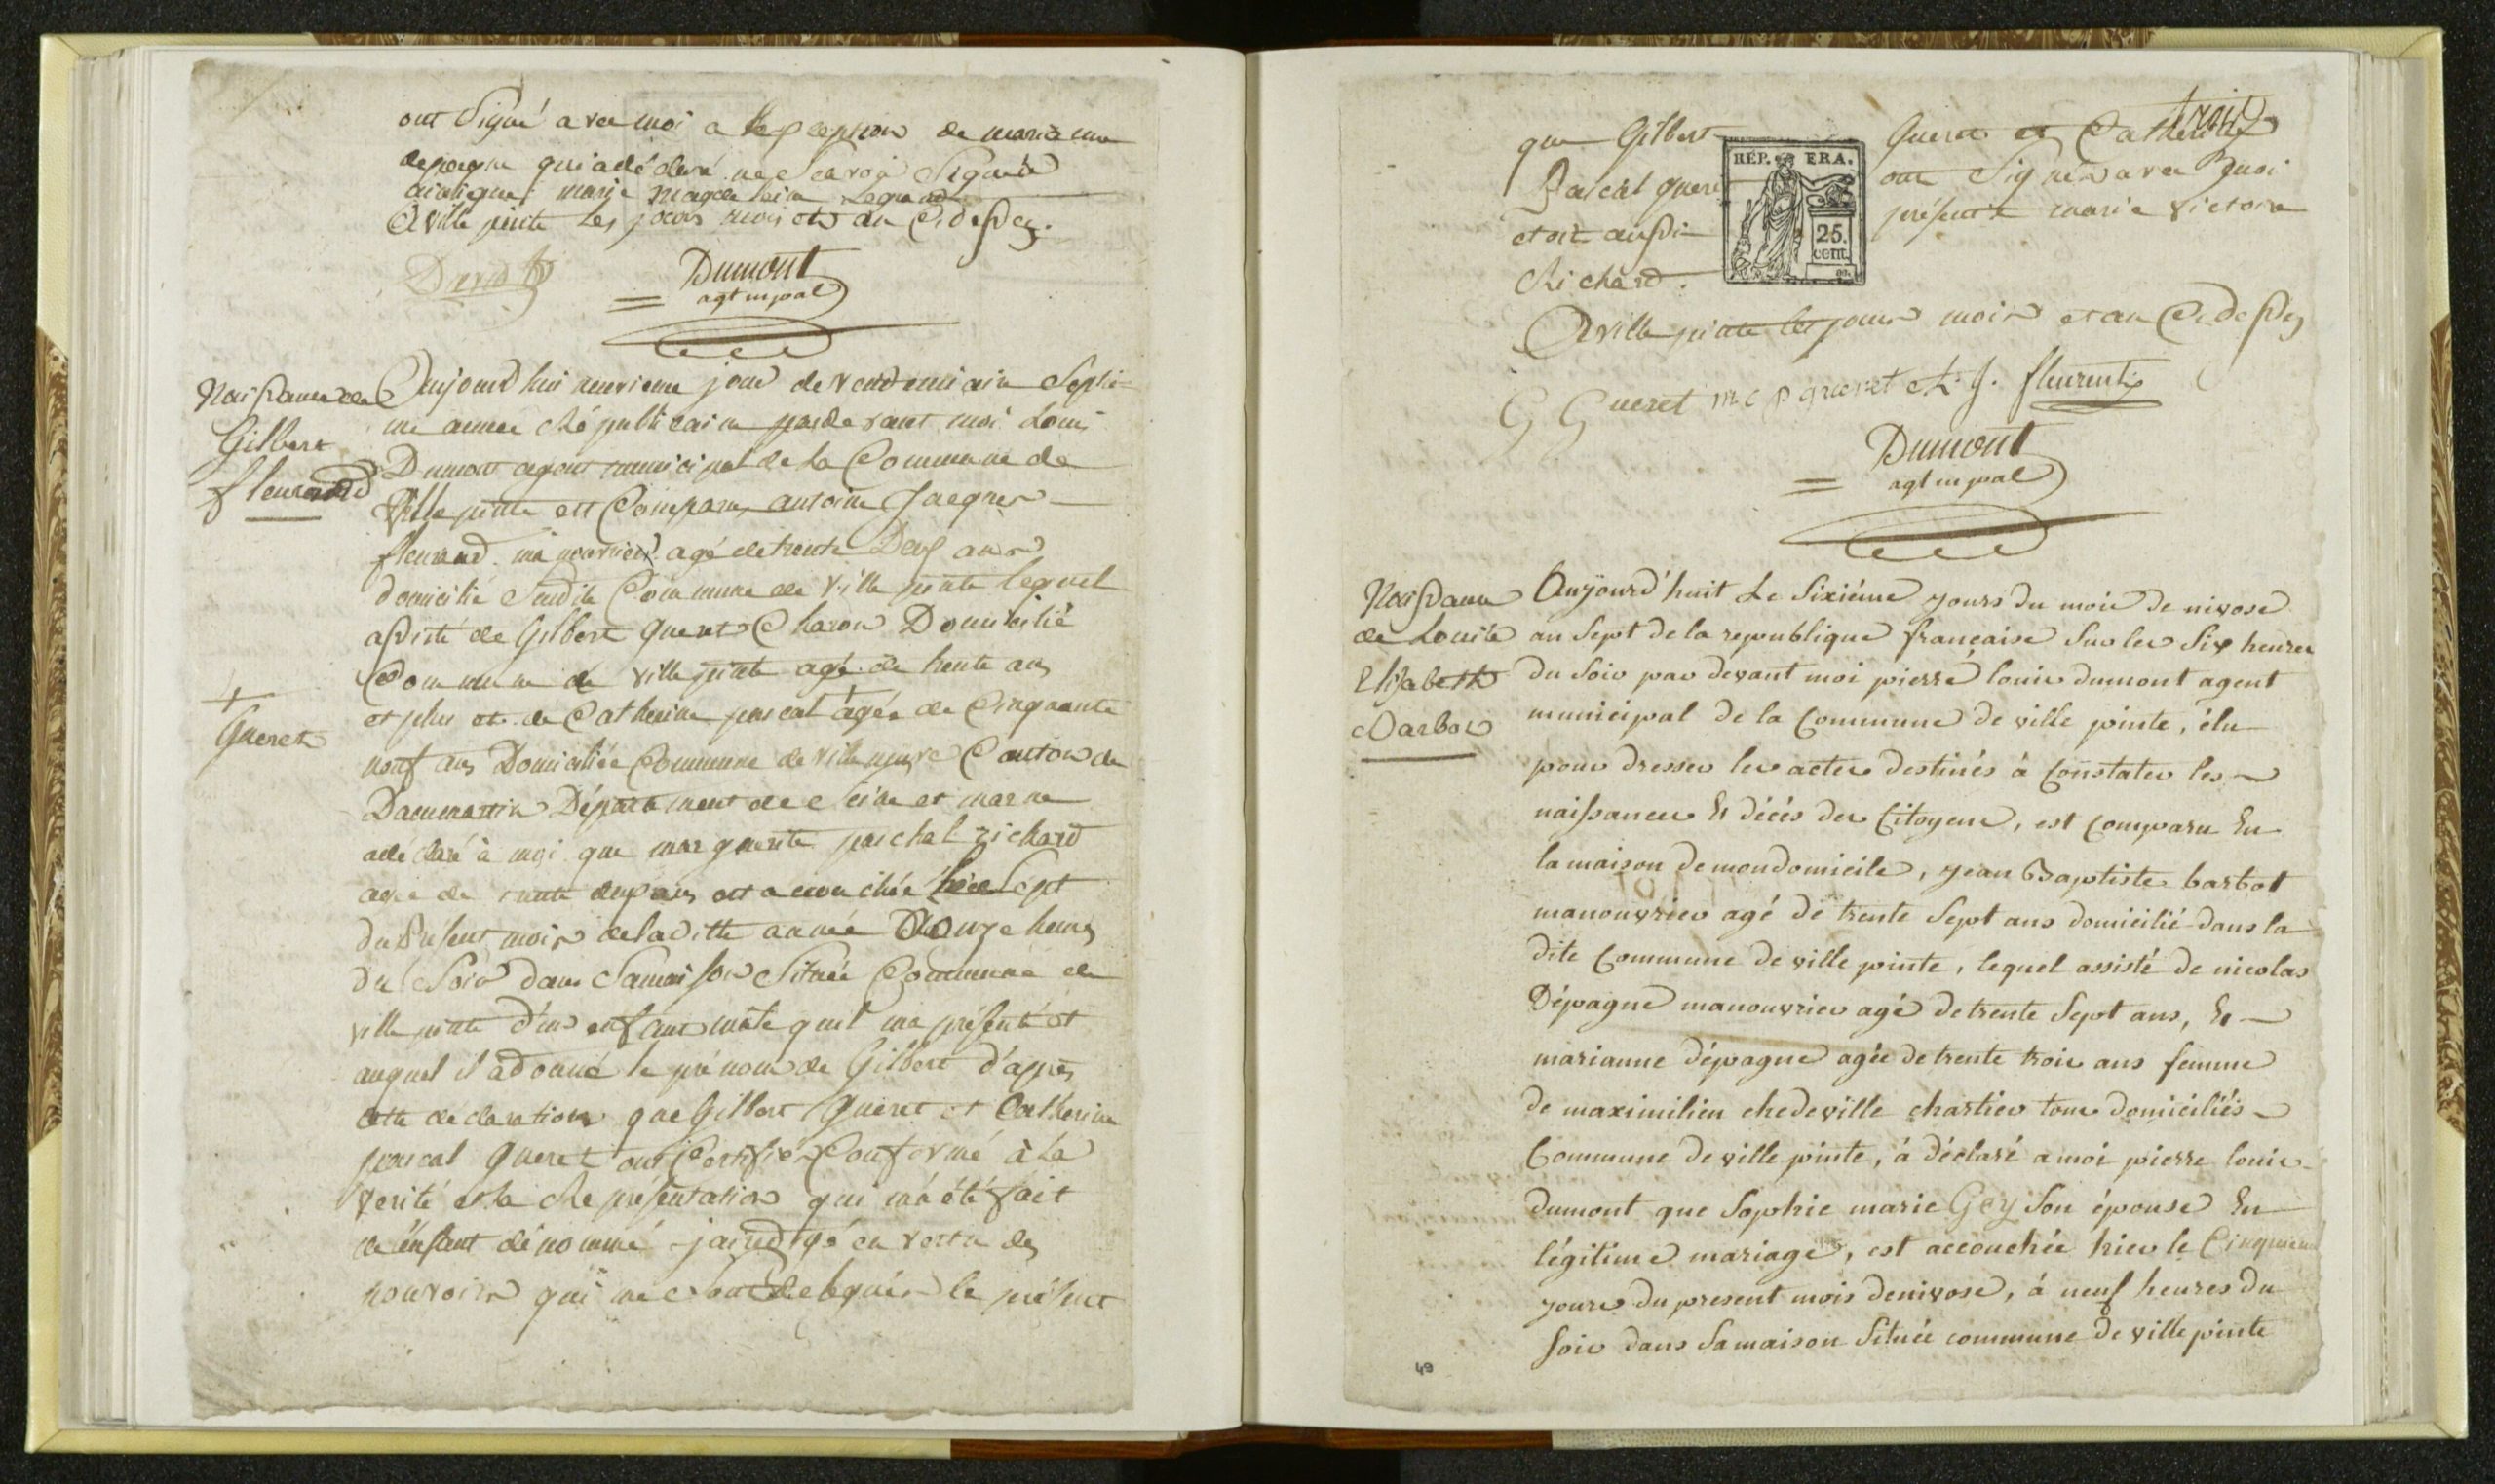 ont Signé avec moi a l'exception de marianne
depagne qui a déclaré ne Scavoir Signée
ainsi que marie magdeleine Legrand
A ville pinte les jours mois et an Ci dessez.
David
Dumont
agt mpal
Naissance de
Gilbert
fleurand
Aujourd'hui neuvieme jour de vendemiaire Septie-
me année Républicaine pardevant moi Louis
Dumont agent municipal de la Commune de
Ville pinte est Comparu antoine Jacques
fleurand manouvrier agé de trente Deux ans
domicilié Susdite Commune de ville pinte lequel
assisté de Gilbert Queret Charon Domicilié
Commune de ville pinte agé de trente ans
+
Gueret
et plus et de Catherine pascal agée de Cinquante
neuf ans Domiciliée Commune de villeneuve Canton de
Dammartin Département de Seine et marne
a déclaré à moi que marguerite paschal richard
agée de trente deux ans est accouchée hier Sept
du présent mois de la ditte année A onze heures
du Soir dans Sa maison Située Commune de
ville pinte d'un enfant mâle qu'il m'a présenté et
auquel il a donné le prénom de Gilbert d'après
cette déclaration que Gilbert Queret et Catherine
pascal Queret ont Certifié Conforme à la
verité et la Représentation qui m'a été fait
de l'enfant dénommé j'ai redigé en vertu des
pouvoirs qui me Sont delegués le présent
trois
que Gilbert Queret et Catherine
Pascal queret ont Signés avec moi
etoit aussi présente marie victoire
Richard.
REP. FRA.
25.
cent.
A ville pinte les jours mois et an Ci dessez
G Gueret m c p gueret A. J. fleurent
Dumont
agt mpal
Naissance
de Louise
Elisabeth
Barbot
Aujourd'huit Le Sixiéme jours du mois de nivose
an Sept de la republique française Sur les Six heures
du Soir par devant moi pierre louis dumont agent
municipal de la Commune de ville pinte, élu
pour dresser les actes destinés à Constater les
naissances Et décés des Citoyens, est Comparu En
la maison de mon domicile, jean Baptiste barbot
manouvrier agé de trente Sept ans domicilié dans la
dite Commune de ville pinte, lequel assisté de nicolas
Dépagne manouvrier agé de trente Sept ans, Et
marianne dépagne agée de trente trois ans femme
de maximilien chedeville chartier tous domiciliés
Commune de ville pinte, à déclaré a moi pierre louis
dumont que Sophie marie Gey Son épouse En
légitime mariage, est accouchée hier le Cinquieme
jours du present mois de nivose, à neuf heures du
Soir dans Sa maison Située commune de ville pinte
49